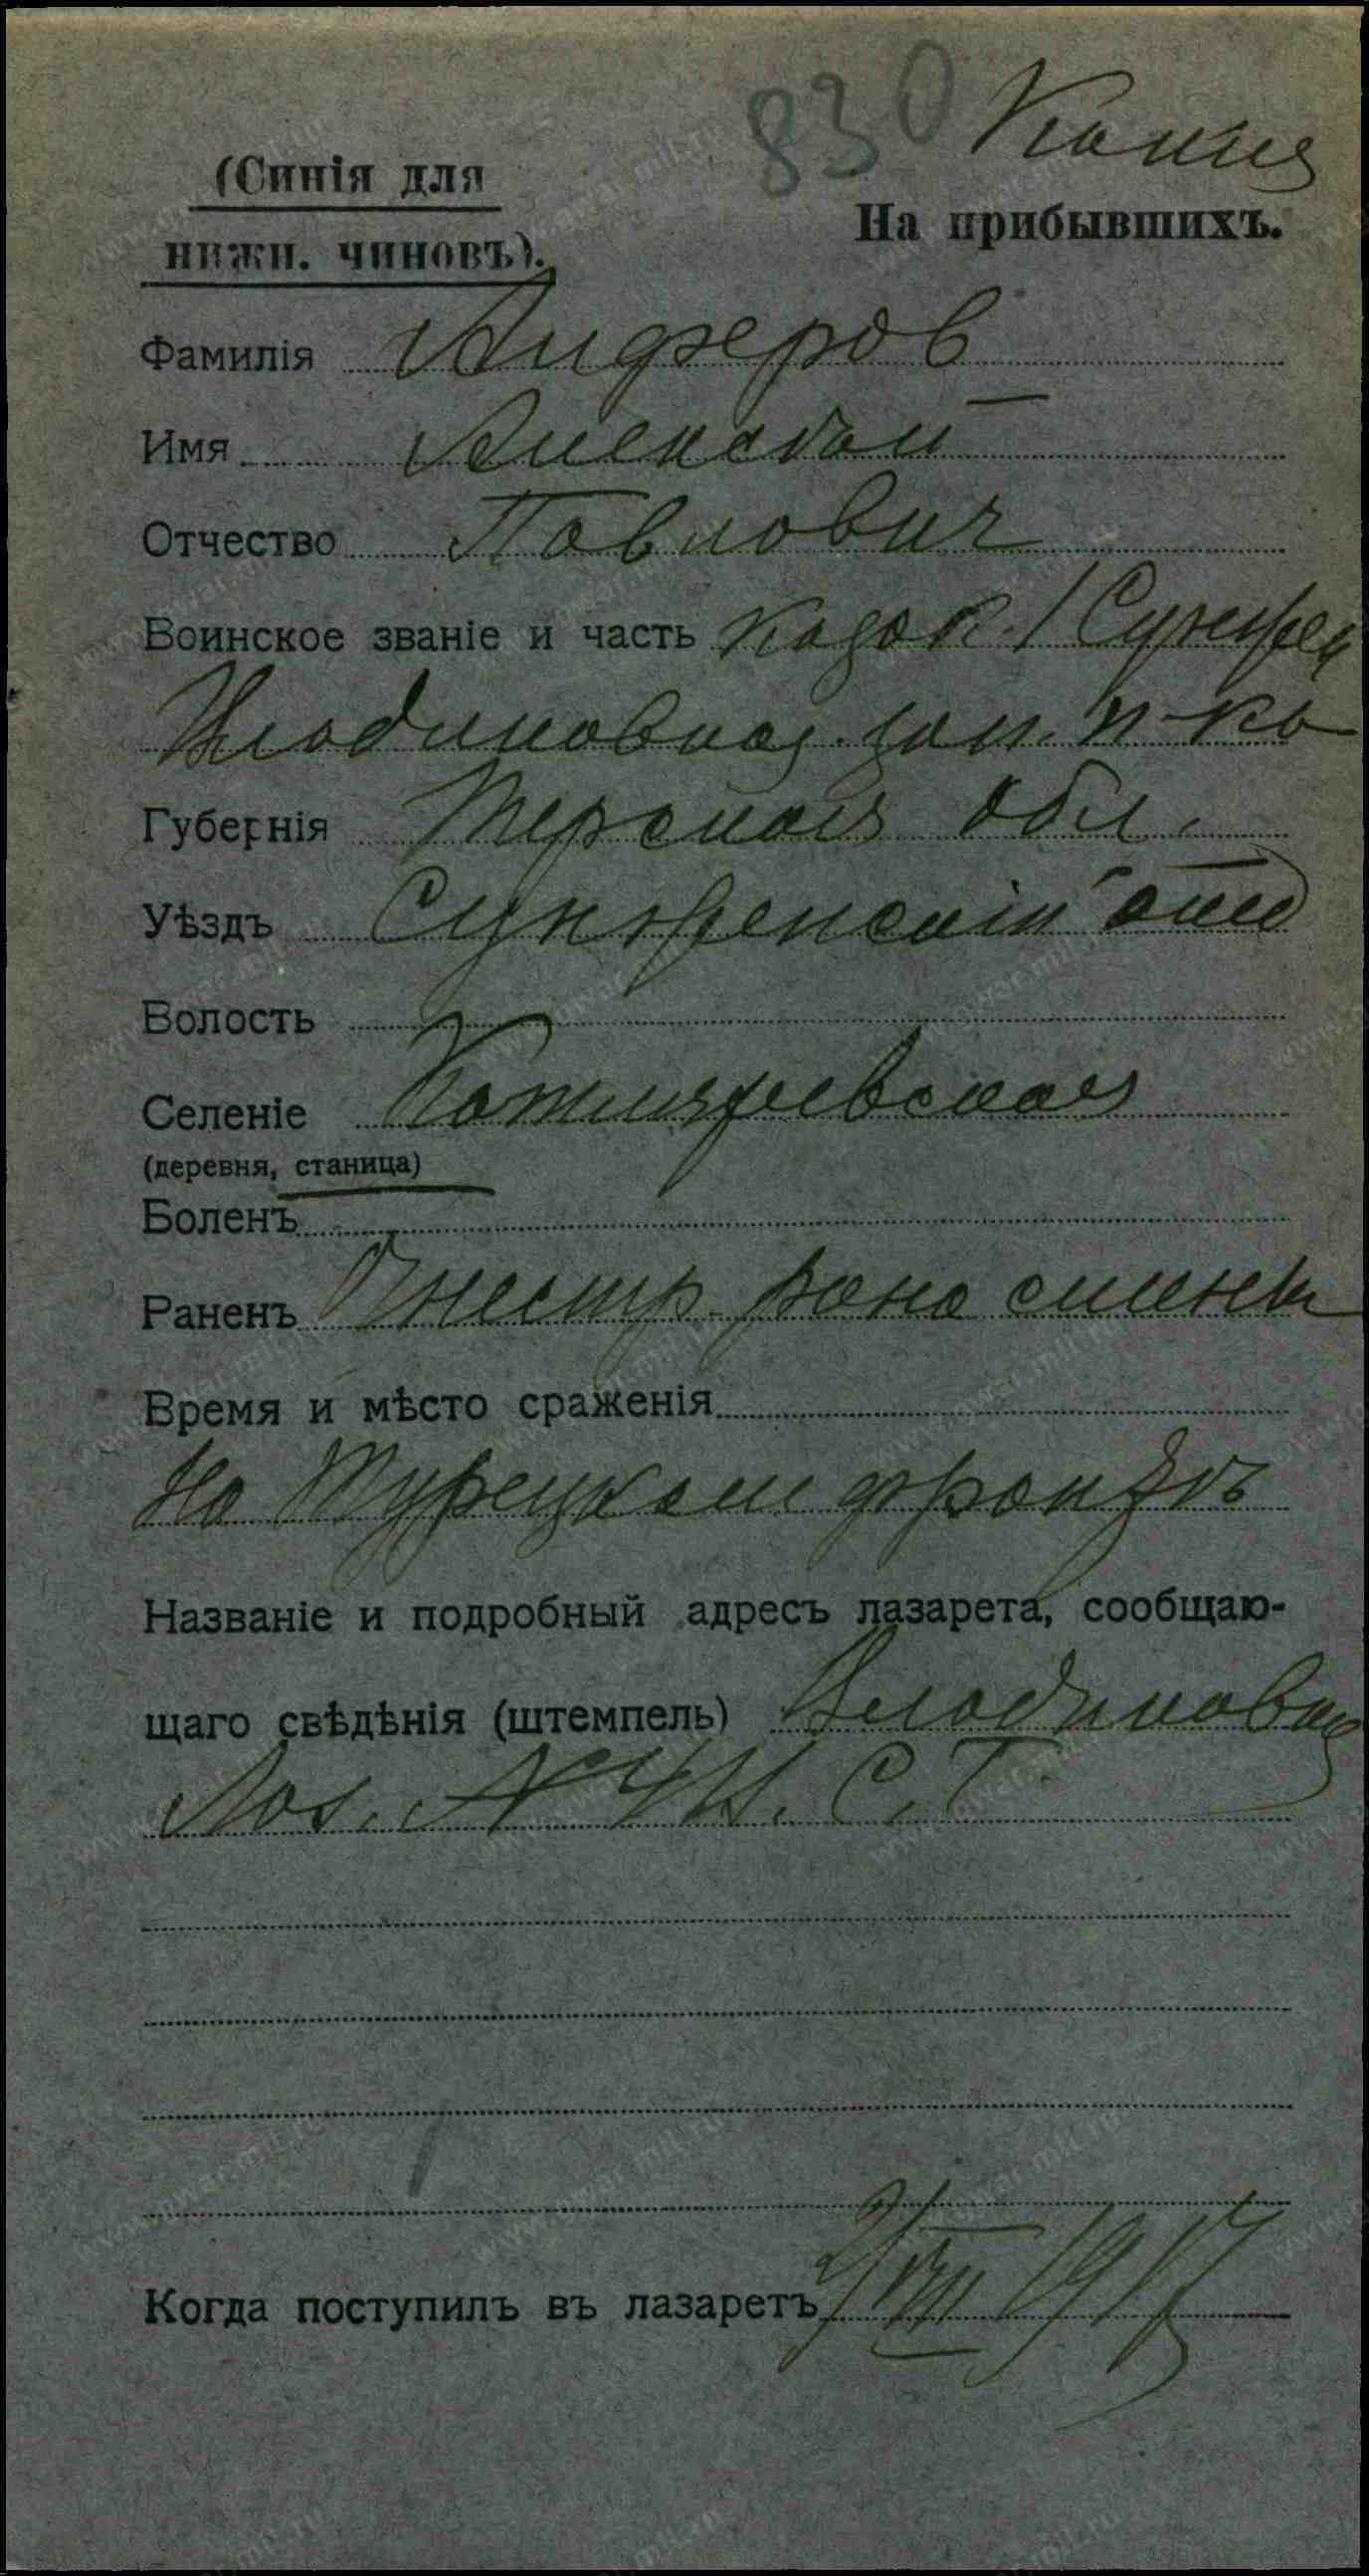 830 Копия
(Синія для
нижн. чиновъ).
На прибывшихъ.
Фамилія Анферов
Имя Алексей
Отчество Павлович
Воинское званіе и часть Казак 1 Сунжен
Владикавказ. п-ка
Губернія Терская обл.
Уѣздъ Сунженскій отд
Волость
Селеніе
(деревня, станица)
Боленъ
Раненъ Огнестр. рана спины
Время и мѣсто сраженія
На Турецком фронтѣ
Названіе и подробный адресъ лазарета, сообщаю-
щаго свѣдѣнія (штемпель) Владикавказ
Лаз. № С. Г.
Когда поступилъ въ лазаретъ 2/VIII 1917